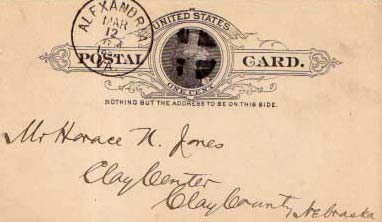 ALEXANDRIA
MAR
12
VA.
UNITED STATES
POSTAL CARD.
ONE CENT
NOTHING BUT THE ADDRESS TO BE ON THIS SIDE.
Mr Horace N. Jones
Clay Center
Clay County, Nebraska